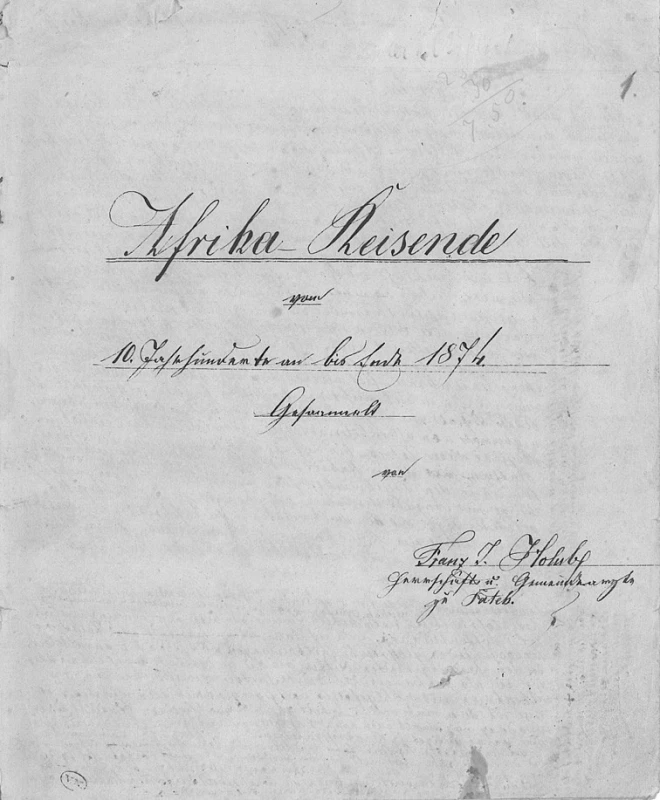 1.
Afrika-Reisende
vom
10. Jahrhunderte an bis Ende 1874.
Gesammelt
von
Franz J. Holub
Herrschafts u. Gemeindearzte
zu Pateb.